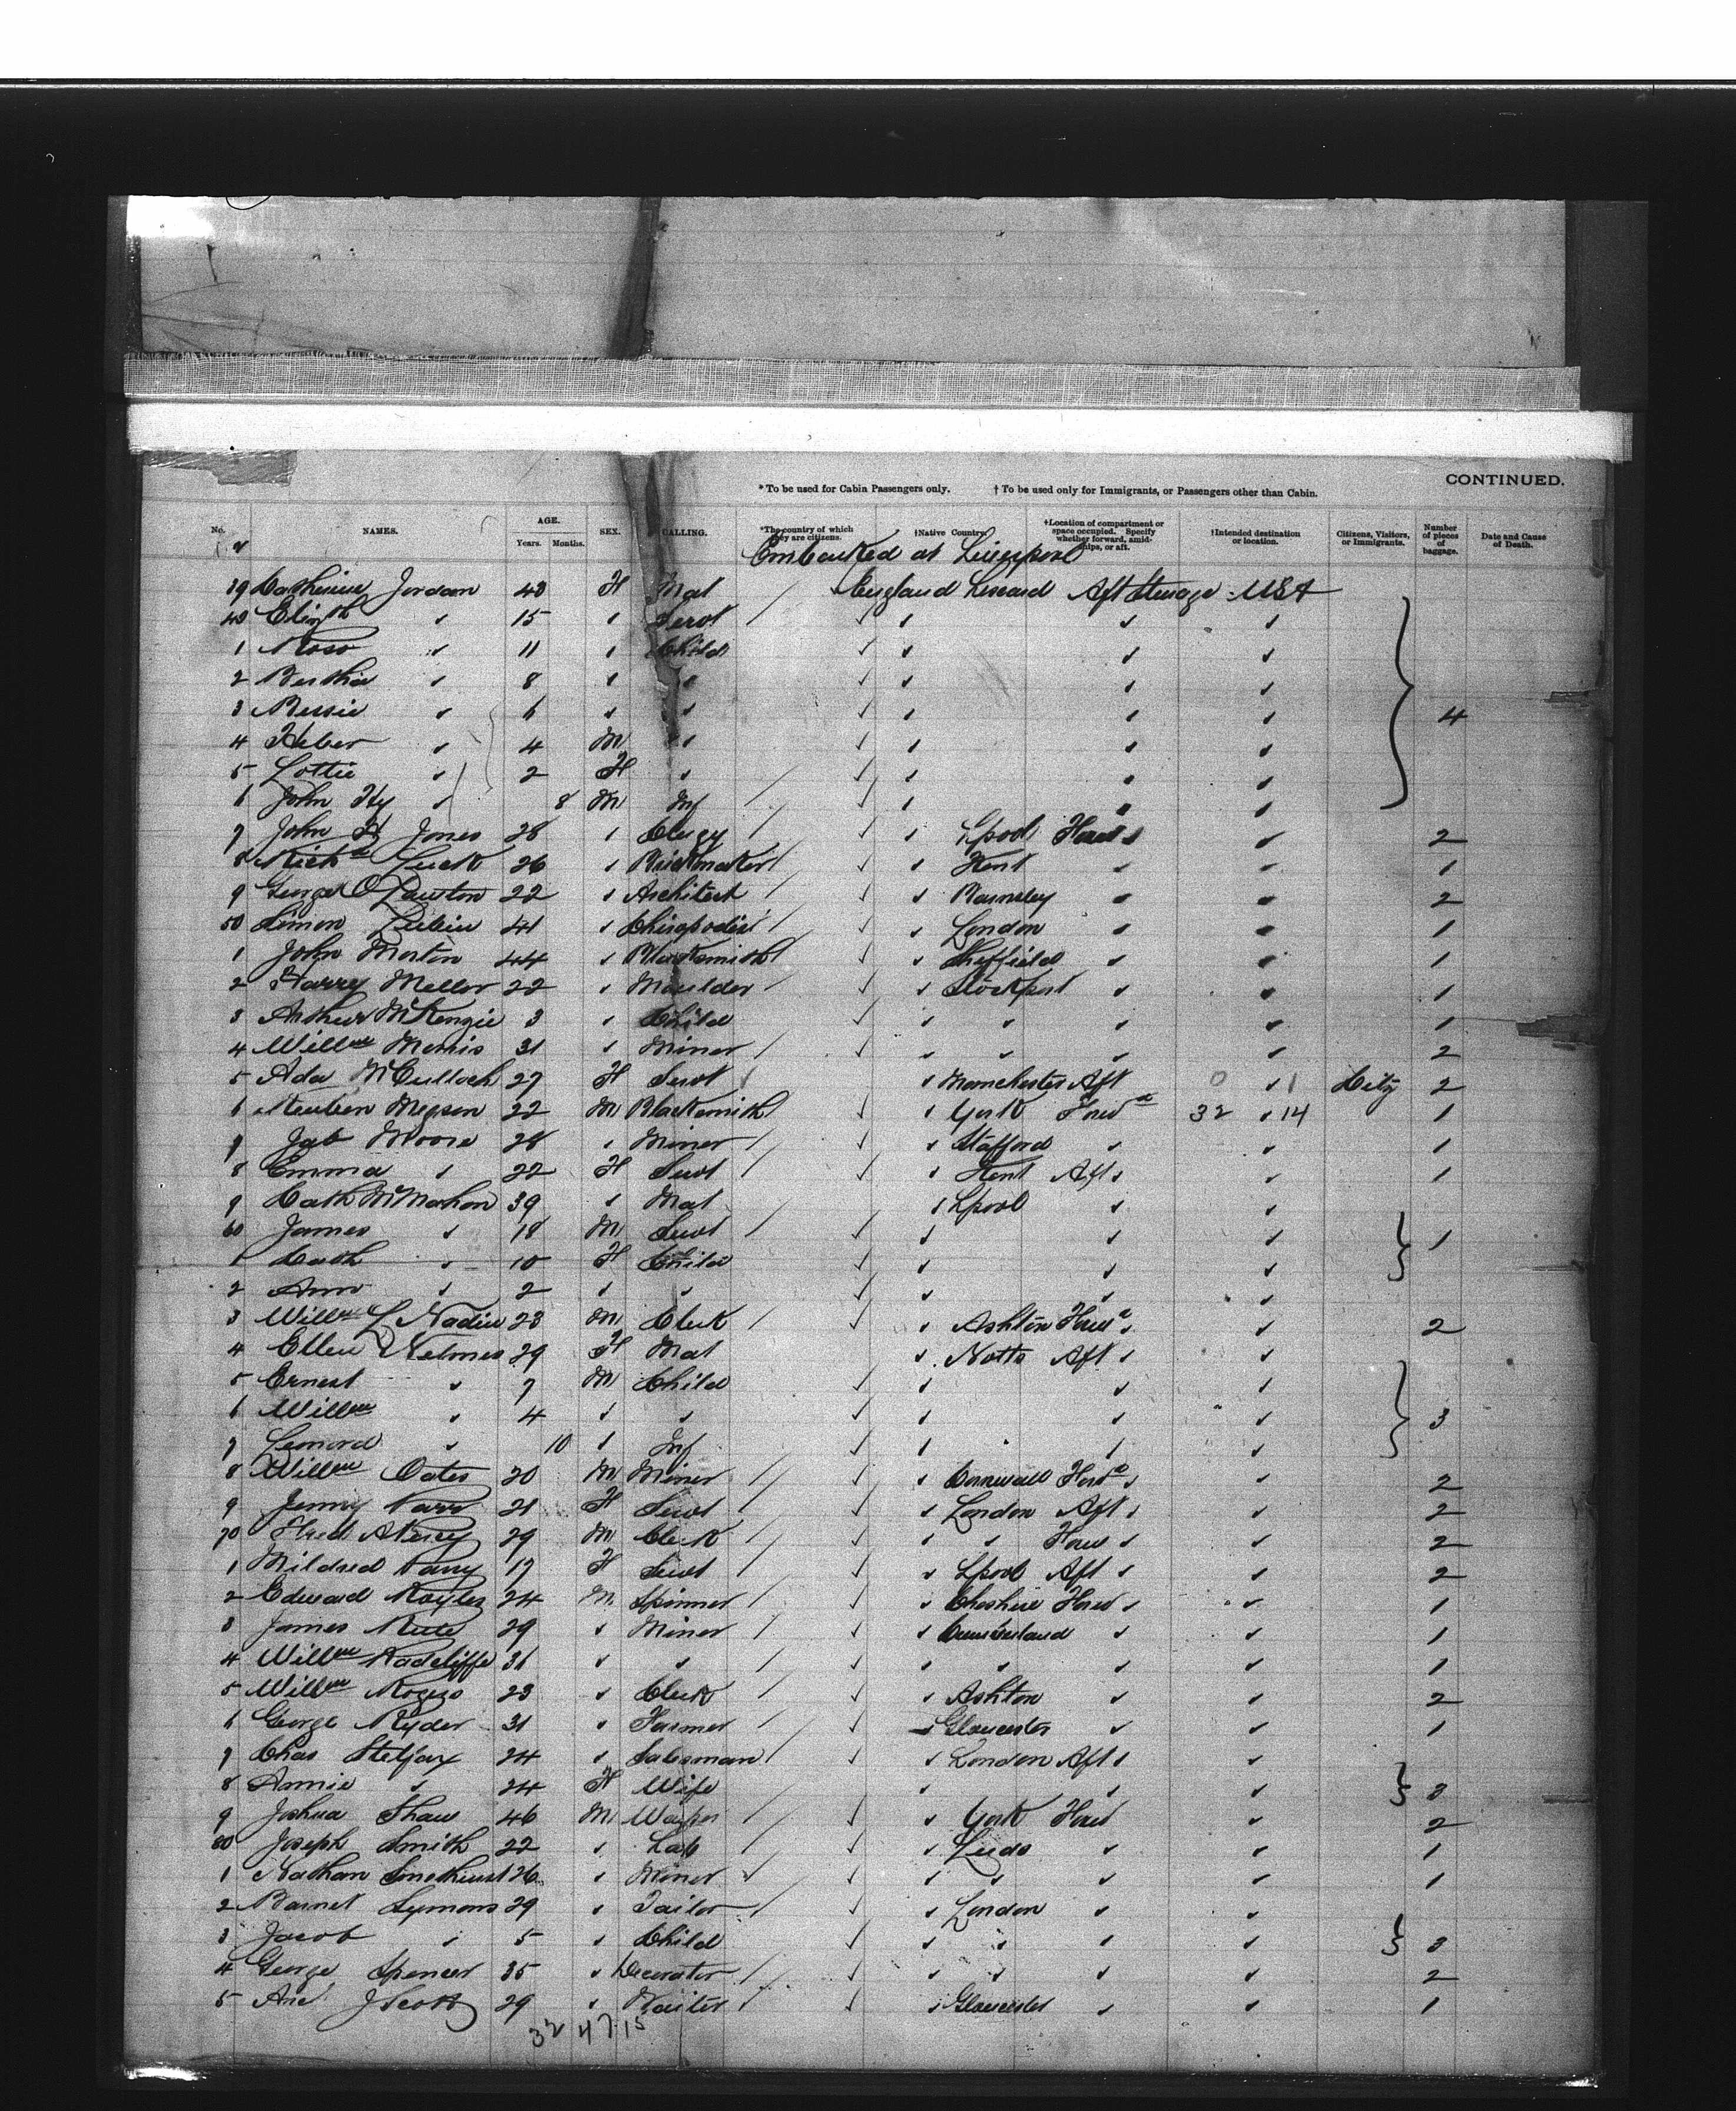 CONTINUED.
*To be used for Cabin Passengers only. †To be used only for Immigrants, or Passengers other than Cabin.
No. NAMES. AGE. Years. Months. SEX. CALLING. *The country of which they are citizens. †Native Country. †Location of compartment or space occupied. Specify whether forward, amidships, or aft. †Intended destination or location. Citizens, Visitors, or Immigrants. Number of pieces of baggage. Date and Cause of Death.
Embarked at Liverpool
39 Catherine Jordan 43 F Mat England Liscard Aft Steerage USA
40 Elizth " 15 " Servt " " "
1 Rose " 11 " Child " " "
2 Bertha " 8 " " " " "
3 Bessie " 6 " " " " " 4
4 Heber " 4 M " " " "
5 Lottie " 2 F " " " "
6 John Hy " 8 M Inf " " "
7 John H Jones 28 " Clergy " Lpool Forwd " 2
8 Richd Luck 26 " Brickmaker " Kent " " 1
9 George O Lawton 22 " Architect " Barnsley " " 2
50 Simon 41 " Chiropodist " London " " 1
1 John Morton 44 " Blacksmith " Sheffield " " 1
2 Harry Mellor 22 " Moulder " Stockport " " 1
3 Arthur McKenzie 3 " Child " " " " 1
4 Willm Morris 31 " Miner " " " " 2
5 Ada McCulloch 27 F Servt " Manchester Aft 0 " 1 City 2
6 Reuben Megson 22 M Blacksmith " York Forwd 32 " 14 1
7 Jab Moore 28 " Miner " Stafford " " 1
8 Emma " 22 F Servt " Kent Aft " " 1
9 Cath McMahon 39 " Mat " Lpool " "
60 James " 18 M Servt " " " 1
1 Cath " 10 F Child " " "
2 Ann " 2 " " " " "
3 Willm L Nadin 23 M Clerk " Ashton Forwd " " 2
4 Ellen Nelmes 29 F Mat " Notts Aft " "
5 Ernest " 7 M Child " " "
6 Willm " 4 " " " " " 3
7 Leonard " 10 " Inf " " "
8 Willm Oates 20 M Miner " Cornwall Forwd " " 2
9 Jenny Parr 21 F Servt " London Aft " " 2
70 Fred A 29 M Clerk " " Forwd " " 2
1 Mildred Parry 17 F Servt " Lpool Aft " " 2
2 Edward 24 M Spinner " Cheshire Forwd " " 1
3 James 29 " Miner " Cumberland " " 1
4 Willm Radcliffe 31 " " " " " " 1
5 Willm Rogers 23 " Clerk " Ashton " " 2
6 George Ryder 31 " Farmer " Gloucester " " 1
7 Chas Stelfox 24 " Salesman " London Aft " "
8 Annie " 24 F Wife " " " 3
9 Joshua Shaw 46 M " York Forwd " 2
80 Joseph Smith 22 " Lab " Leeds " " 1
1 Nathan Smethurst 26 " Miner " " " " 1
2 Barnet Symons 29 " Tailor " London " "
3 Jacob " 5 " Child " " " " 3
4 George Spencer 35 " Decorator " " " " 2
5 J Scott 29 " Waiter " Gloucester " " 1
32 47 15